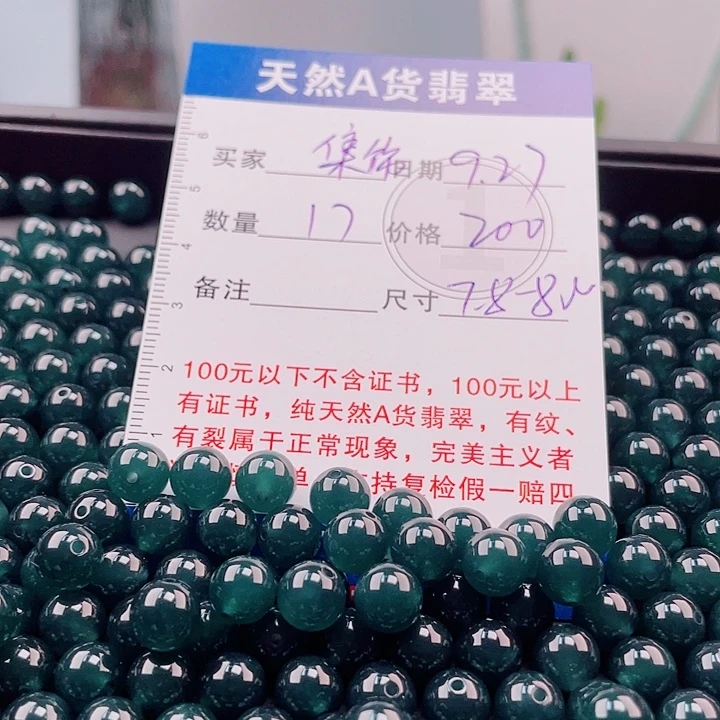 天然A货翡翠
买家 集你 日期 9.27
数量 17 价格 200
备注 尺寸 7.8-8
100元以下不含证书，100元以上
有证书，纯天然A货翡翠，有纹、
有裂属于正常现象，完美主义者
单 持复检假一赔四
6
5
4
3
2
1